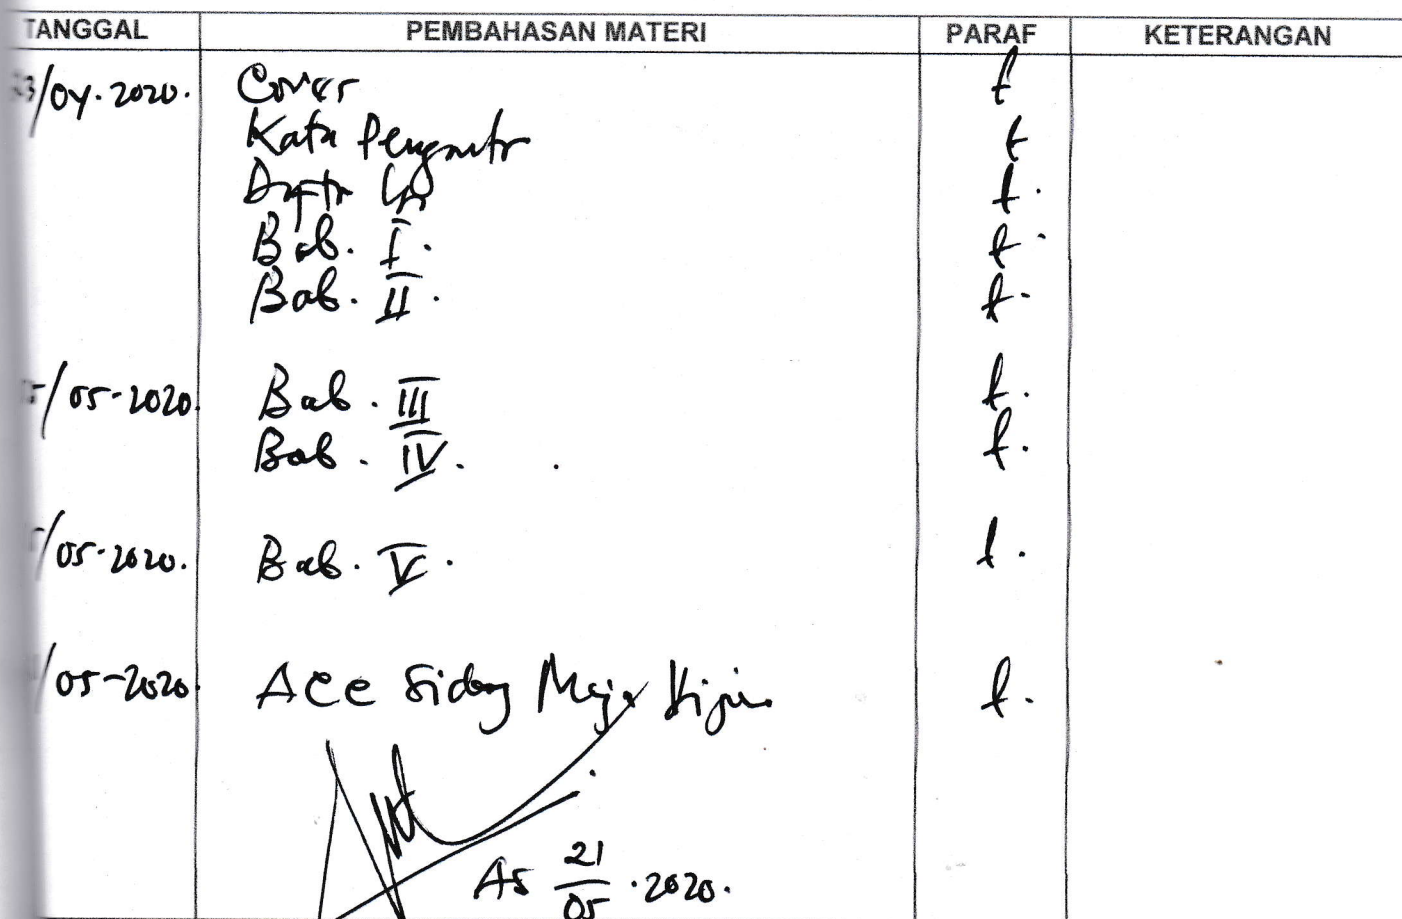 TANGGAL PEMBAHASAN MATERI PARAF KETERANGAN
/04.2020. Cover
Kata Pengantr
Daftr Isi
Bab. I.
Bab. II.
/05-2020. Bab. III
Bab. IV.
/05-2020. Bab. V.
/05-2020 Acc Sidang Meja Hijau.
21
05 .2020.